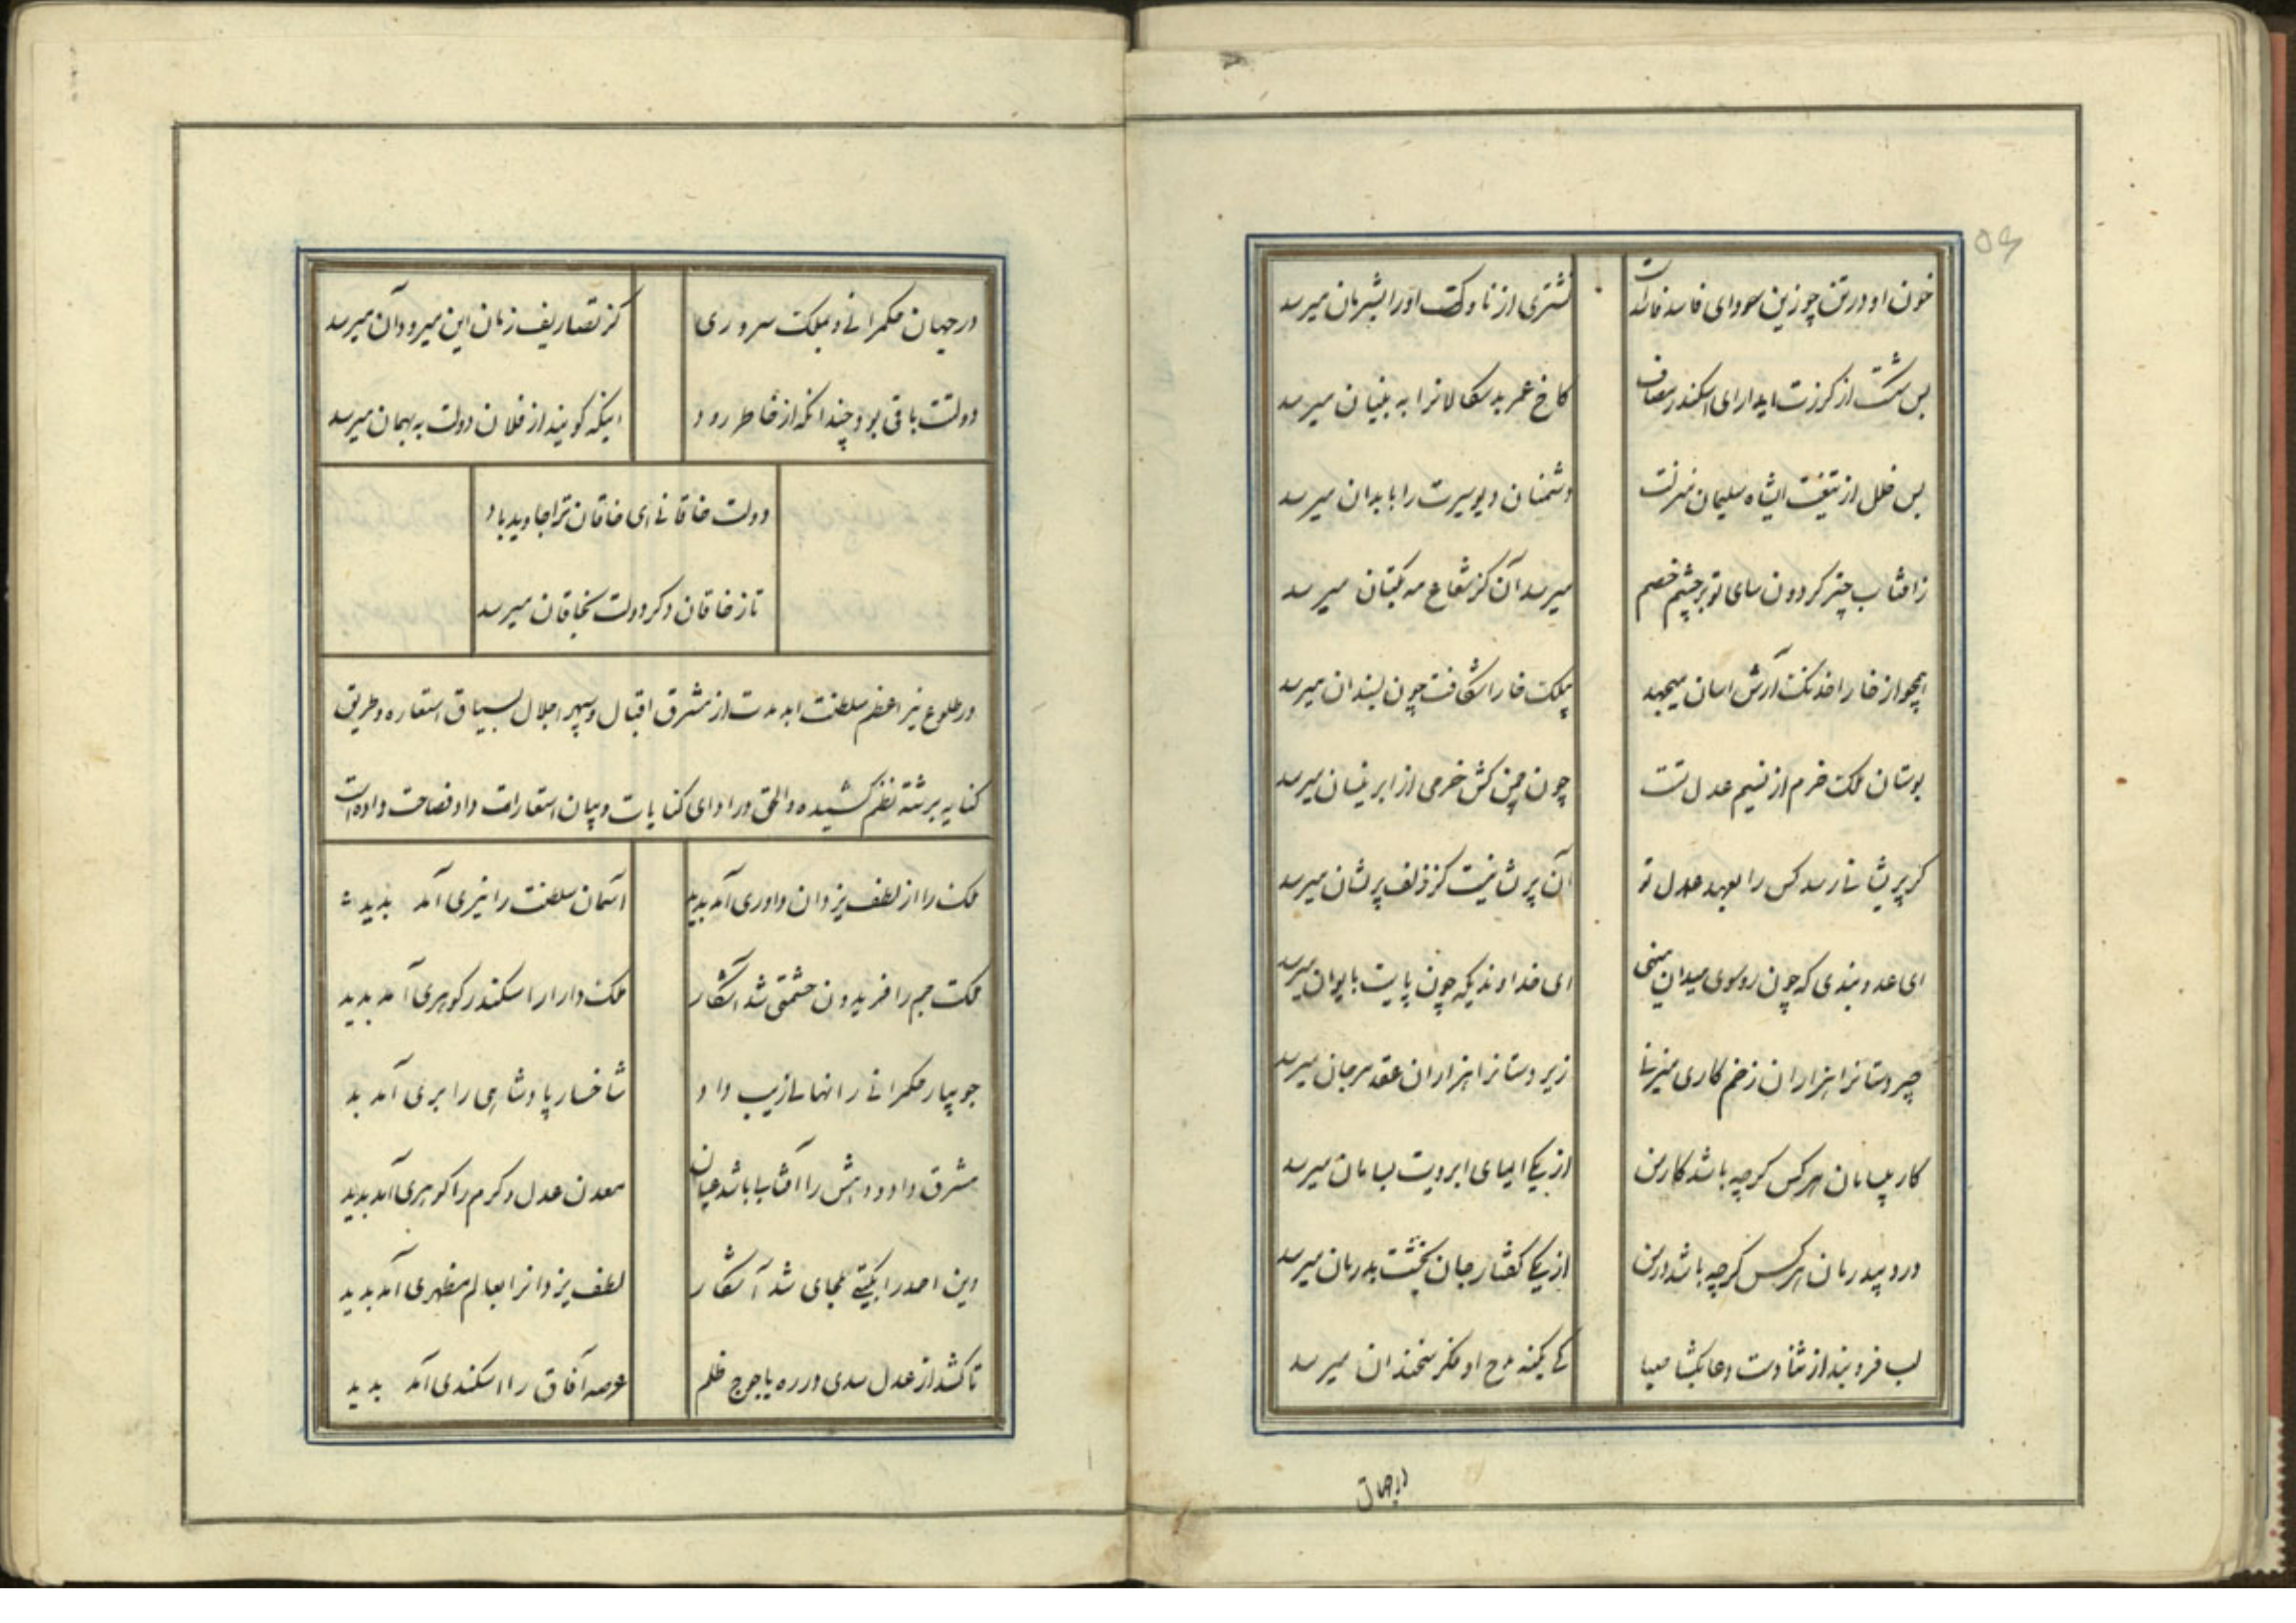 ۵۶
خون او در تن چو زین سودای فاسد فاسد است
نشتری از ناوکت او را بشریان میرسد
بس شکست از کرزت ایدارای اسکندر مصاف
کاخ عمر بدسکالانرا به بنیان میرسد
بس خلل از تیغت ایشاه سلیمان منزلت
دشمنان دیو سیرت را بابدان میرسد
زافتاب چتر کردون سای تو بر چشم خصم
میرسد آن کز شعاع مه بکتان میرسد
همچو از خارا خدنکت آرش اسان میجهد
بیلکت خارا شکافت چون بسندان میرسد
بوستان ملکت خرم از نسیم عدل تست
چون چمن کش خرمی از ابر نیسان میرسد
کر پریشانی رسد کس را بعهد عدل تو
آن پریشانیست کز زلف پریشان میرسد
ای عدو بندی که چون رو سوی میدان مینهی
ای خداوندیکه چون پایت بایوان میرسد
چیردستانرا هزاران زخم کاری میزنی
زیردستانرا هزاران عقد مرجان میرسد
کار بیسامان هر کس کرچه باشد کار من
از یکی ایمای ابرویت بسامان میرسد
درد بیدرمان هر کس کرچه باشد درد من
از یکی کفتار جان بخشت بدرمان میرسد
لب فرو بند از ثنا دست دعا بکشا صبا
کی بکنه مدح او فکر سخندان میرسد
در جهان
در جهان حکمرانی و بملکت سروری
کز تصاریف زمان این میرود آن میرسد
دولتت باقی بود چندانکه از خاطر رود
اینکه کویند از فلان دولت به بهمان میرسد
دولت خاقانی ای خاقان ترا جاوید باد
تا ز خاقان دکر دولت بخاقان میرسد
در طلوع نیر اعظم سلطنت ابد مدت از مشرق اقبال و سپهر اجلال بسیاق استعاره و طریق
کنایه برشته نظم کشیده و الحق در ادای کنایات و بیان استعارات داد فصاحت داده است
ملک را از لطف یزدان داوری آمد بدید
آسمان سلطنت را نیری آمد بدید
ملکت جم را فریدون حشمتی شد آشکار
ملک دارا را سکندر کوهری آمد بدید
جویبار حکمرانی را نهالی زیب داد
شاخسار پادشاهی را بری آمد بد
مشرق داد و دهش را آفتابی باشد عیان
معدن عدل و کرم را کوهری آمد بدید
دین احمد را بکیتی ملجای شد آشکار
لطف یزدانرا بعالم مظهری آمد بدید
تا کشد از عدل سدی در ره یاجوج ظلم
عرصه آفاق را اسکندی آمد بدید